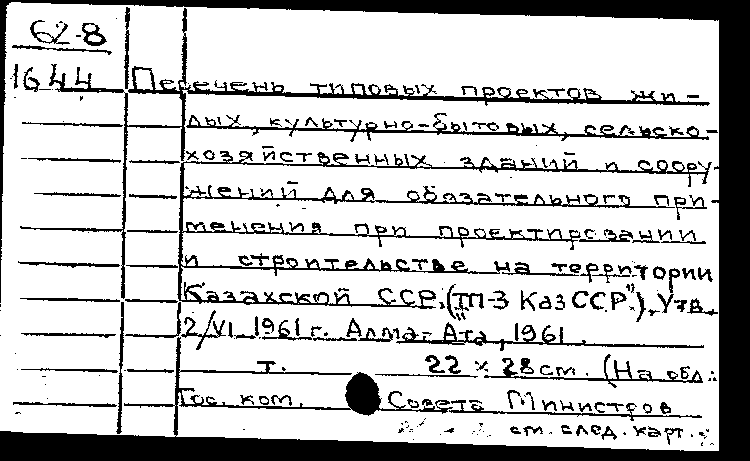 62-8
1644 Перечень типовых проектов жи-
лых, культурно-бытовых, сельско-
хозяйственных зданий и соору-
жений для обязательного при-
менения при проектировании
и строительстве на территории
Казахской ССР. ("ТП-3 КазССР"). Утв.
2/VI 1961 г. Алма-Ата, 1961.
т. 22 х 28 см. (На обл.:
Гос. ком. Совета Министров
см. след. карт.